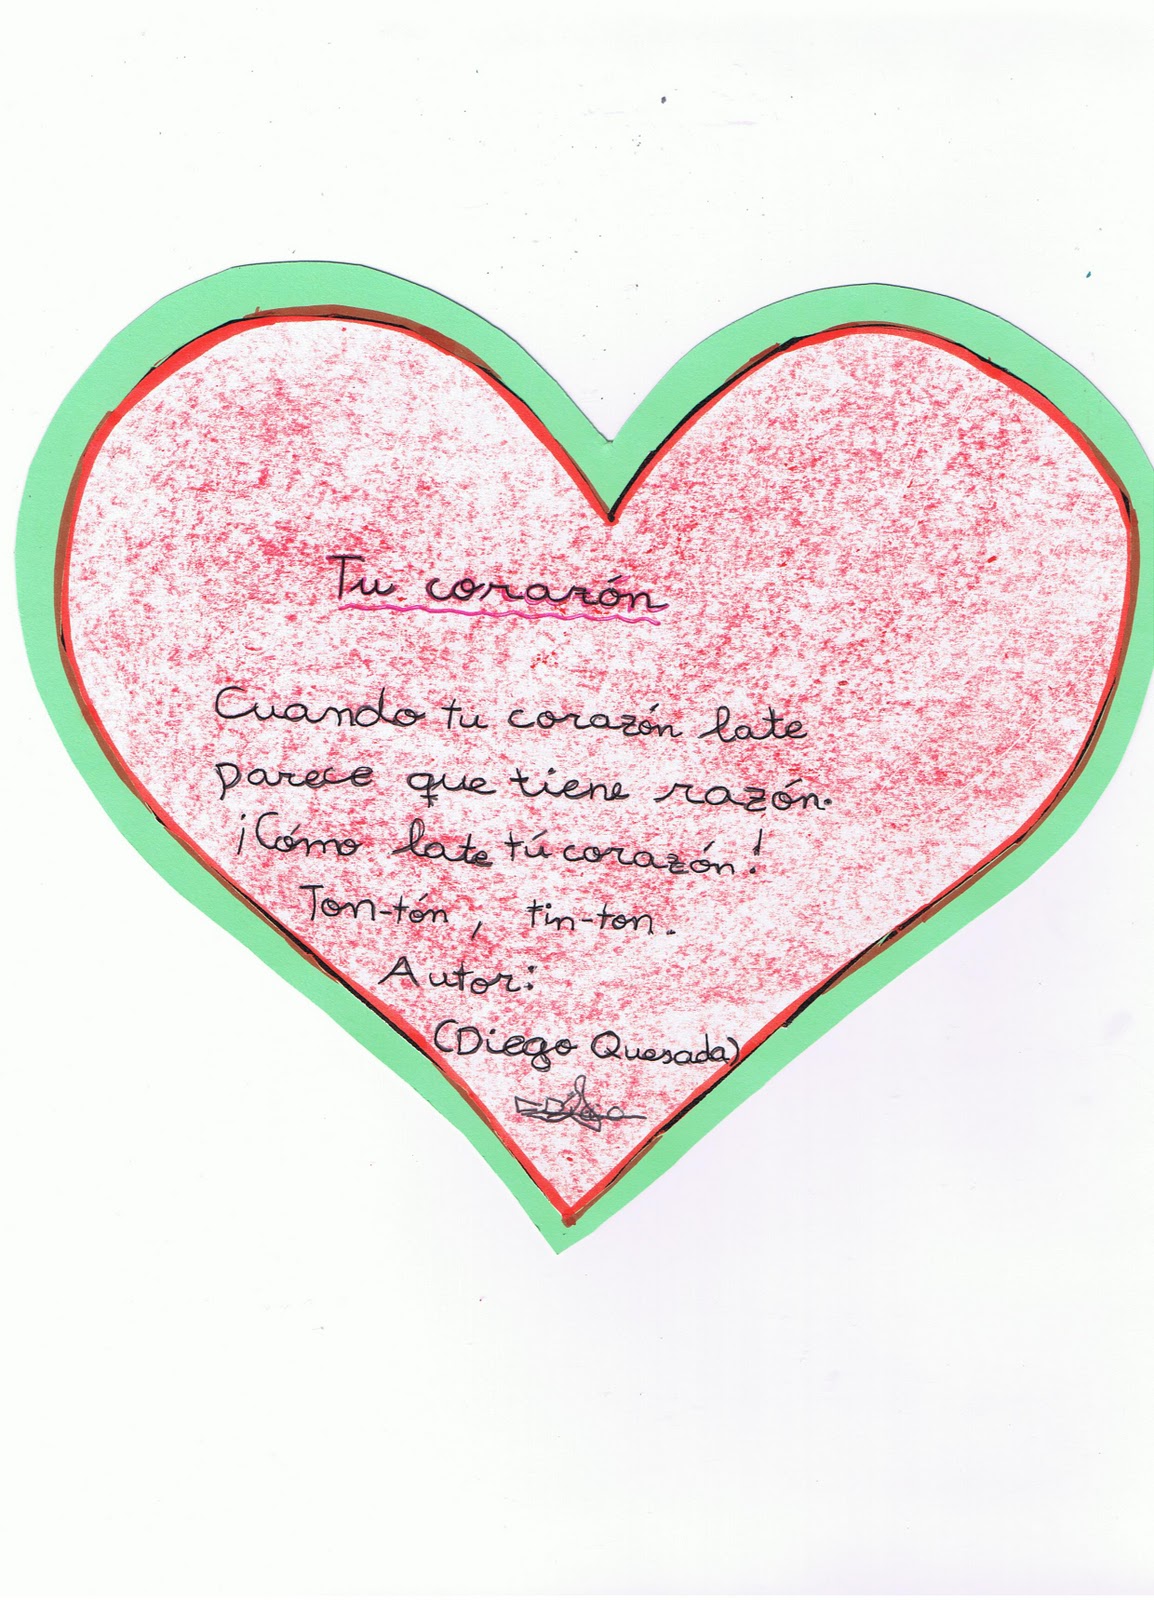 Tu corazón
Cuando tu corazón late
parece que tiene razón.
¡Cómo late tú corazón!
Ton-tón, tin-ton.
Autor:
(Diego Quesada)